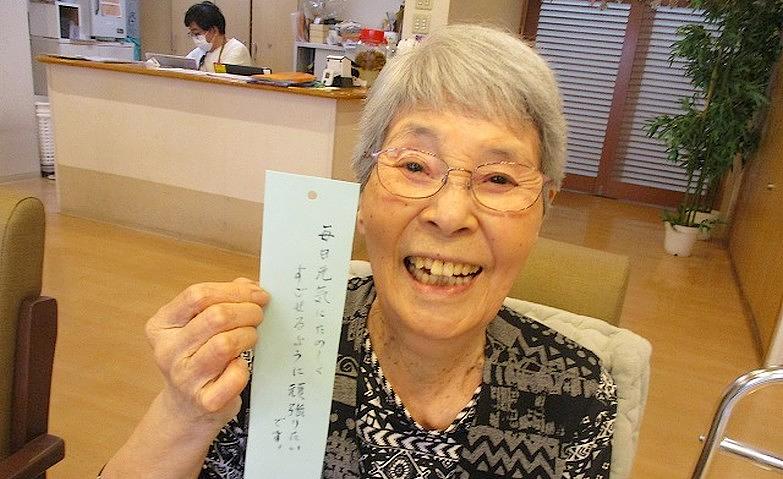 毎日元気にたのしく
すごせるように頑張りたい
です。